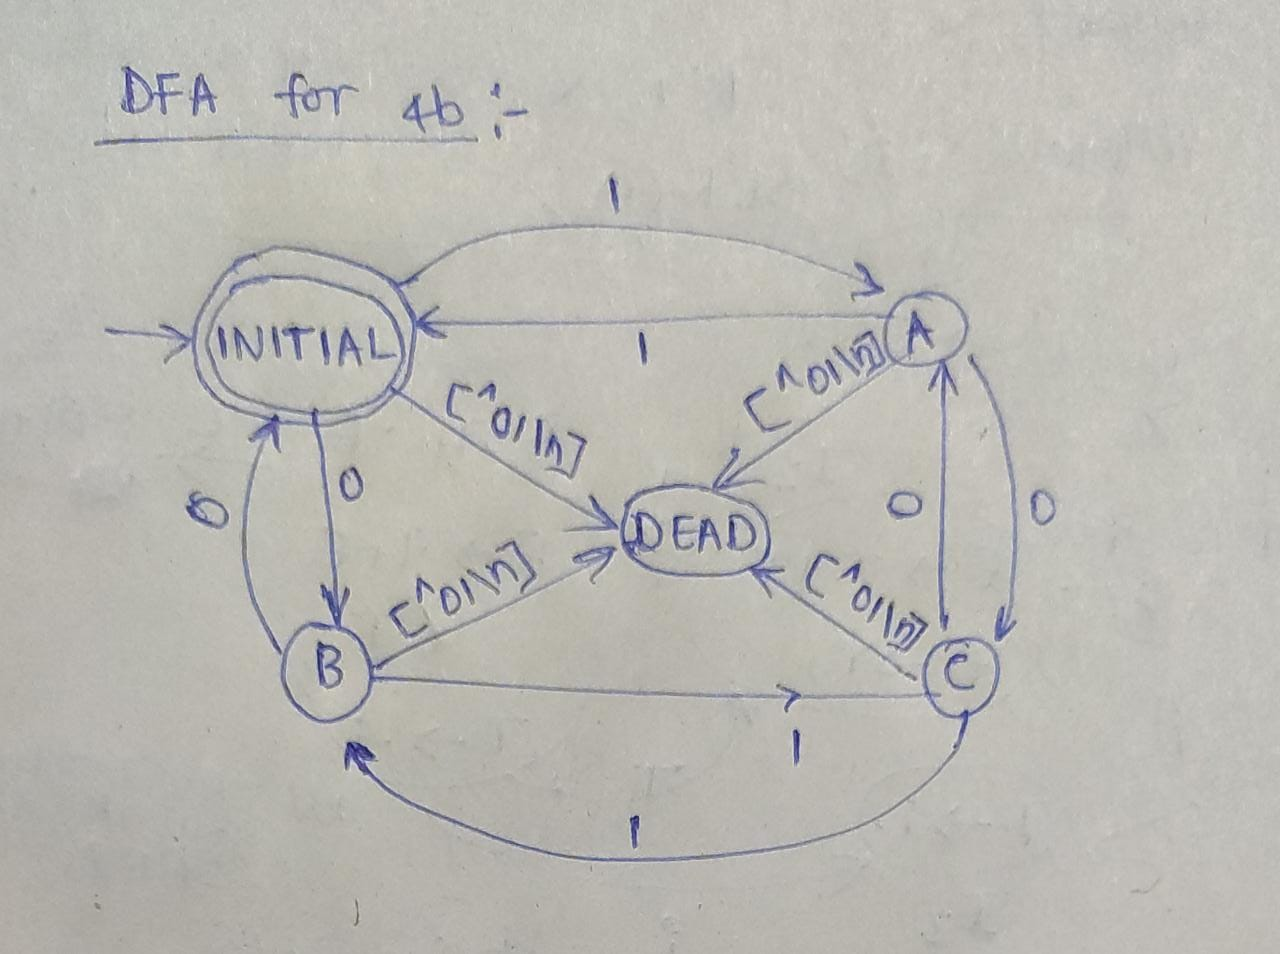 DFA for 4b :-
1
INITIAL
A
1
[^01\n]
[^01\n]
0
0
DEAD
0
0
[^01\n]
[^01\n]
B
C
1
1